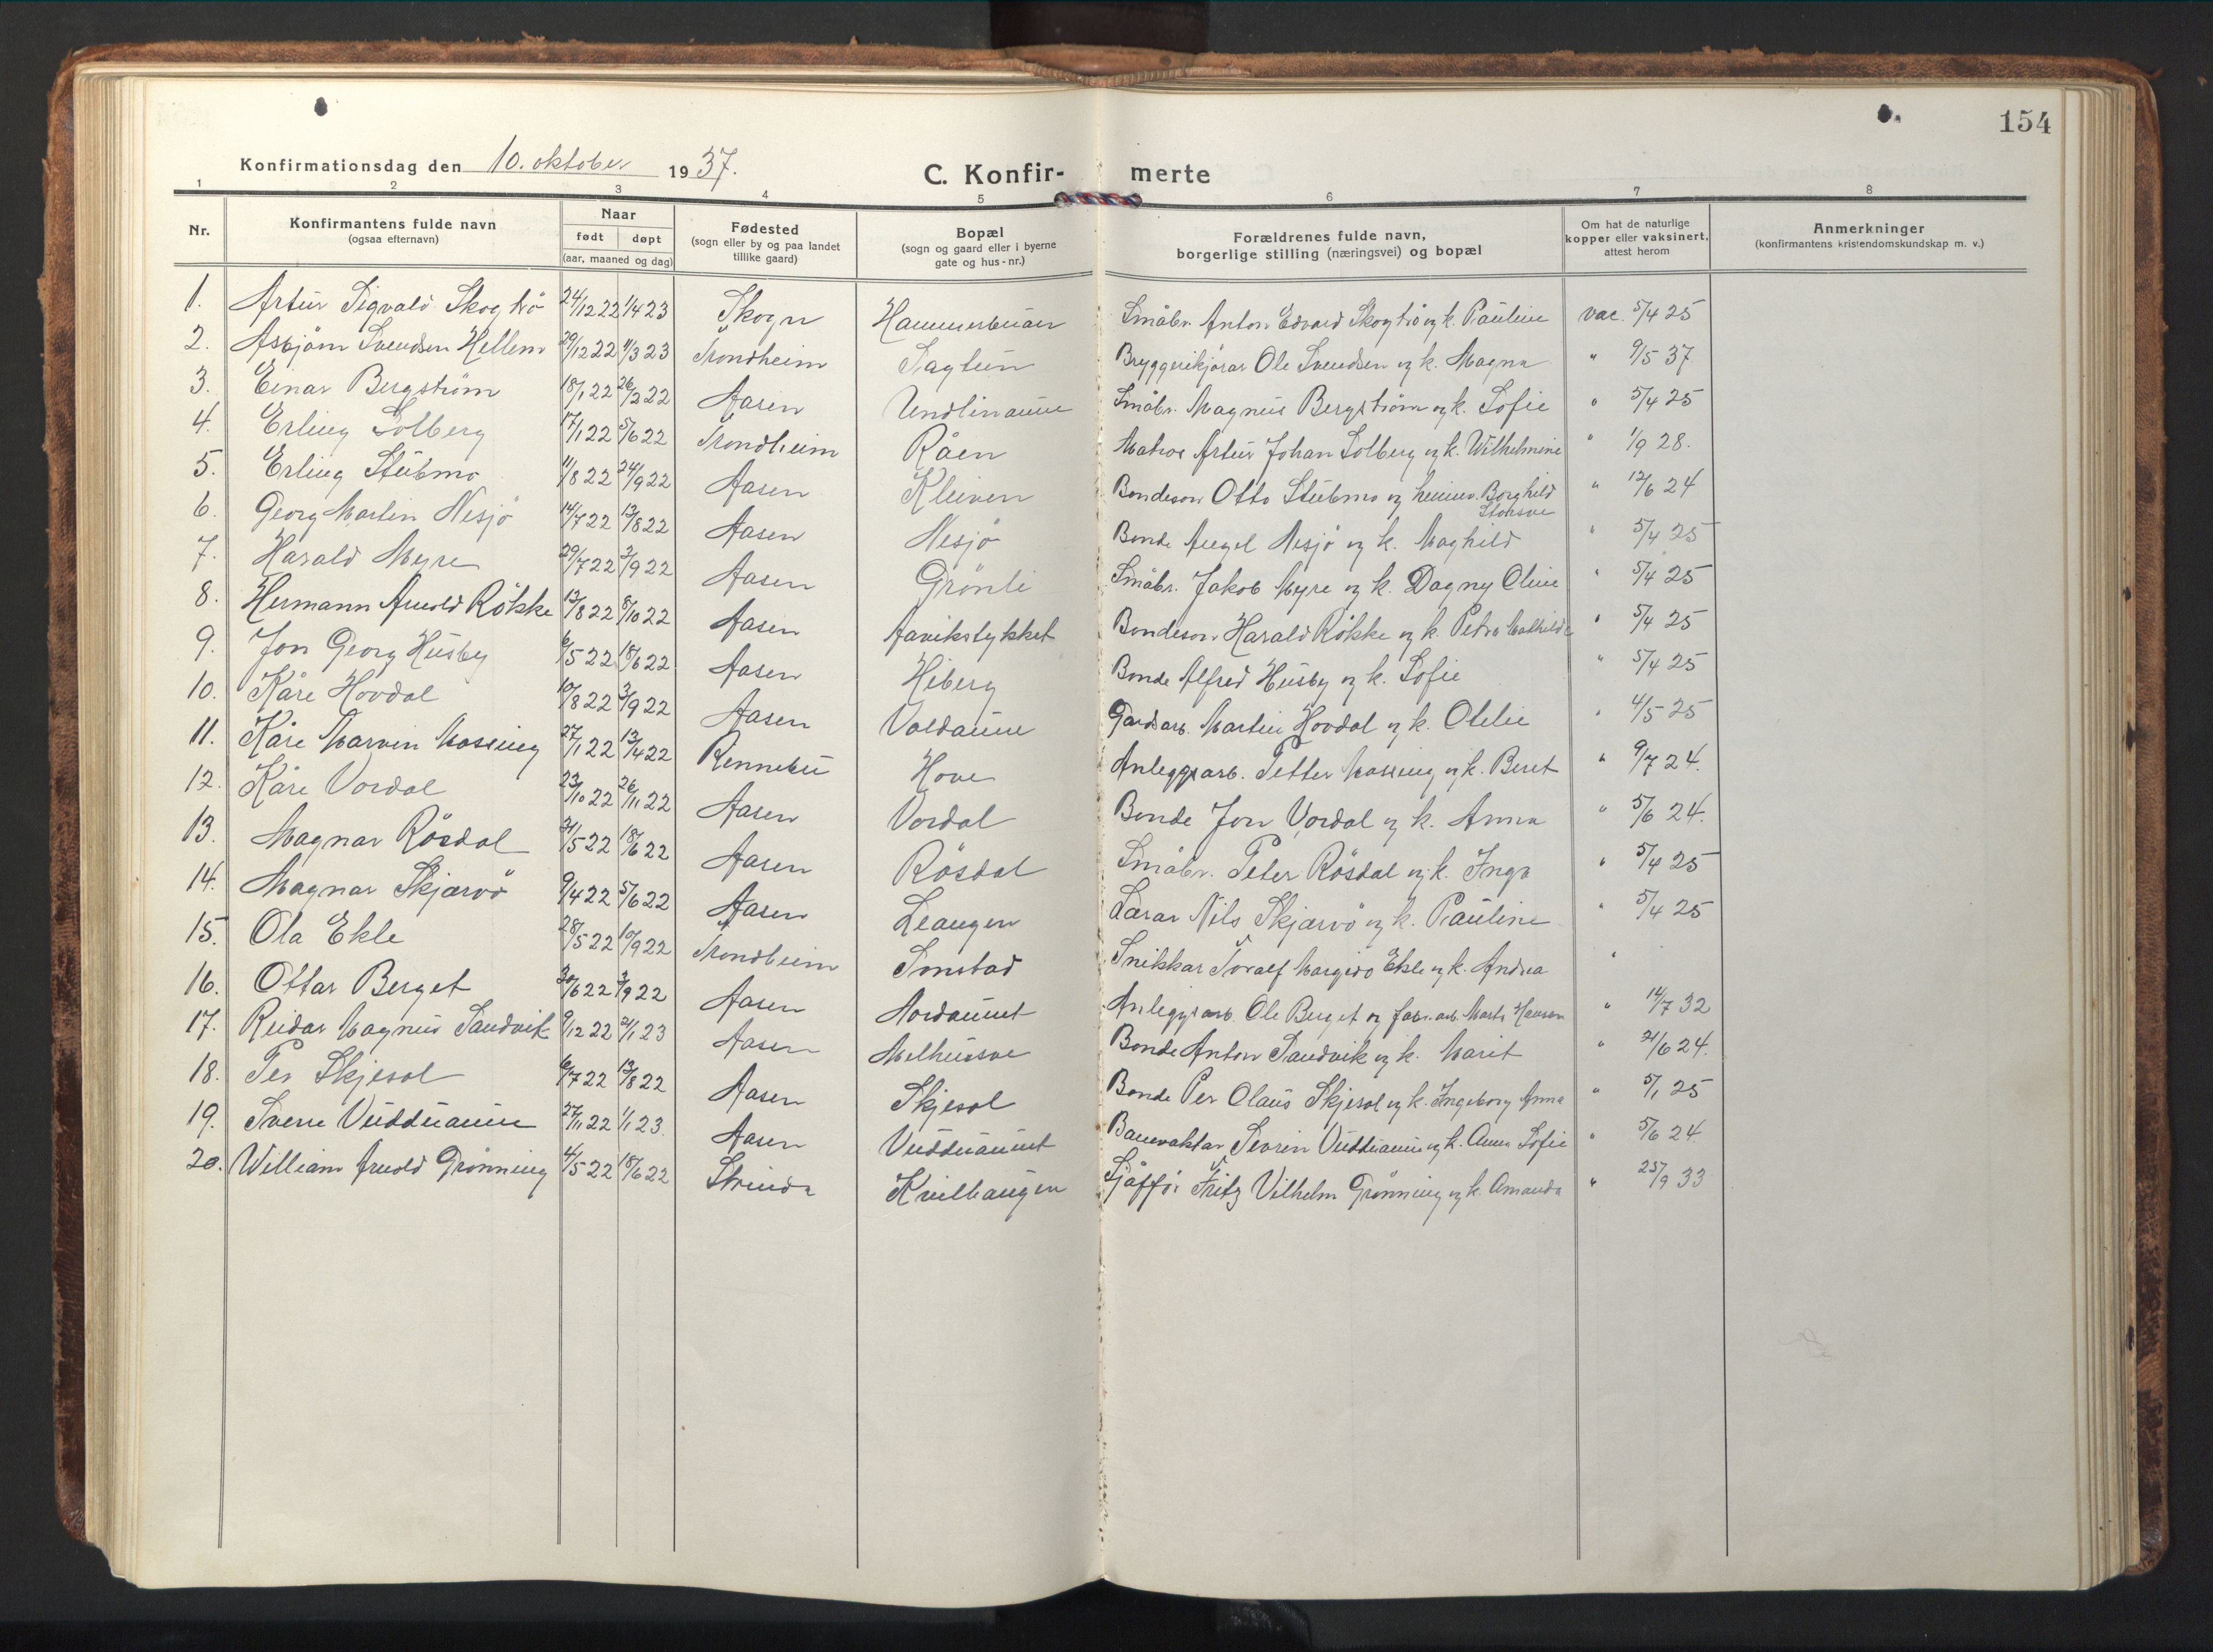 154
Konfirmationsdag den 10. oktober 1937. C. Konfir- merte
1 2 3 4 5 6 7 8
Nr. Konfirmantens fulde navn (ogsaa efternavn) Naar født døpt (aar, maaned og dag) Fødested (sogn eller by og paa landet tillike gaard) Bopæl (sogn og gaard eller i byerne gate og hus-nr.) Forældrenes fulde navn, borgerlige stilling (næringsvei) og bopæl Om hat de naturlige kopper eller vaksinert, attest herom Anmerkninger (konfirmantens kristendomskundskap m. v.)
1. Artur Sigvald Skogtrö 24/12 22 1/4 23 Skogn Hammerbuan Småbr. Anton Edvard Skogtrö og k. Pauline vac. 5/4 25
2. Asbjörn Svendsen Hellem 29/12 22 11/3 23 Trondheim Fagtun Bryggerikjörar Ole Svendsen og k. Magna " 9/5 37.
3. Einar Bergström 18/1 22 26/2 22 Aasen Undlinaune Småbr. Magnus Bergström og k. Sofie " 5/4 25
4. Erling Solberg 17/1 22 5/6 22 Trondheim Råen Matros Artur Johan Solberg og k. Wilhelmine " 1/9 28.
5. Erling Stubmo 11/8 22 24/9 22 Aasen Kleiven Bondeson Otto Stubmo og Borghild " 12/6 24
6. Georg Martin Nesjö 14/7 22 13/8 22 Aasen Nesjö Bonde Nesjö og k. Maghild " 5/4 25
7. Harald Myre 29/7 22 3/9 22 Aasen Grönli Småbr. Jakob Myre og k. Dagny Oline " 5/4 25
8. Hermann Arnold Rökke 13/8 22 8/10 22 Aasen Aavikstykket Bondeson Harald Rökke og k. Petra Mathilde " 5/4 25
9. Jon Georg Husby 6/5 22 18/6 22 Aasen Hiberg Bonde Alfred Husby og k. Sofie " 5/4 25
10. Kåre Hovdal 10/8 22 3/9 22 Aasen Voldaune Gardsarb. Martin Hovdal og k. Otelie " 4/5 25
11. Kåre Marvin Massing 27/1 22 13/4 22 Rennebu Hove Anleggsarb. Petter Massing og k. Beret " 9/7 24.
12. Kåre Vordal 23/10 22 26/11 22 Aasen Vordal Bonde Jon Vordal og k. Anna " 5/6 24.
13. Magnar Rösdal 21/5 22 18/6 22 Aasen Rösdal Småbr. Peter Rösdal og k. Inga " 5/4 25
14. Magnar Skjærvö 9/4 22 5/6 22 Aasen Leangen Lærar Nils Skjærvö og k. Pauline " 5/4 25
15. Ola Ekle 28/5 22 10/9 22 Trondheim Sonstad Snikkar Toralf Margido Ekle og k. Andrea "
16. Ottar Berget 30/6 22 3/9 22 Aasen Nordaunet Anleggsarb. Ole Berget og fabr.arb. Marta Hansen " 14/7 32
17. Reidar Magnus Sandvik 9/12 22 21/1 23 Aasen Melhussve Bonde Anton Sandvik og k. Marit " 21/6 24.
18. Per Skjesol 6/7 22 13/8 22 Aasen Skjesol Bonde Per Olaus Skjesol og k. Ingeborg Anna " 5/1 25
19. Sverre Vudduaune 27/11 22 1/1 23. Aasen Vudduaunet Banevaktar Severin Vudduaune og k. Anna Sofie " 5/6 24
20. William Arnold Grönning 4/5 22 18/6 22 Strinda Kvilhaugen Sjåfför Fritz Vilhelm Grönning og k. Amanda " 25/9 33